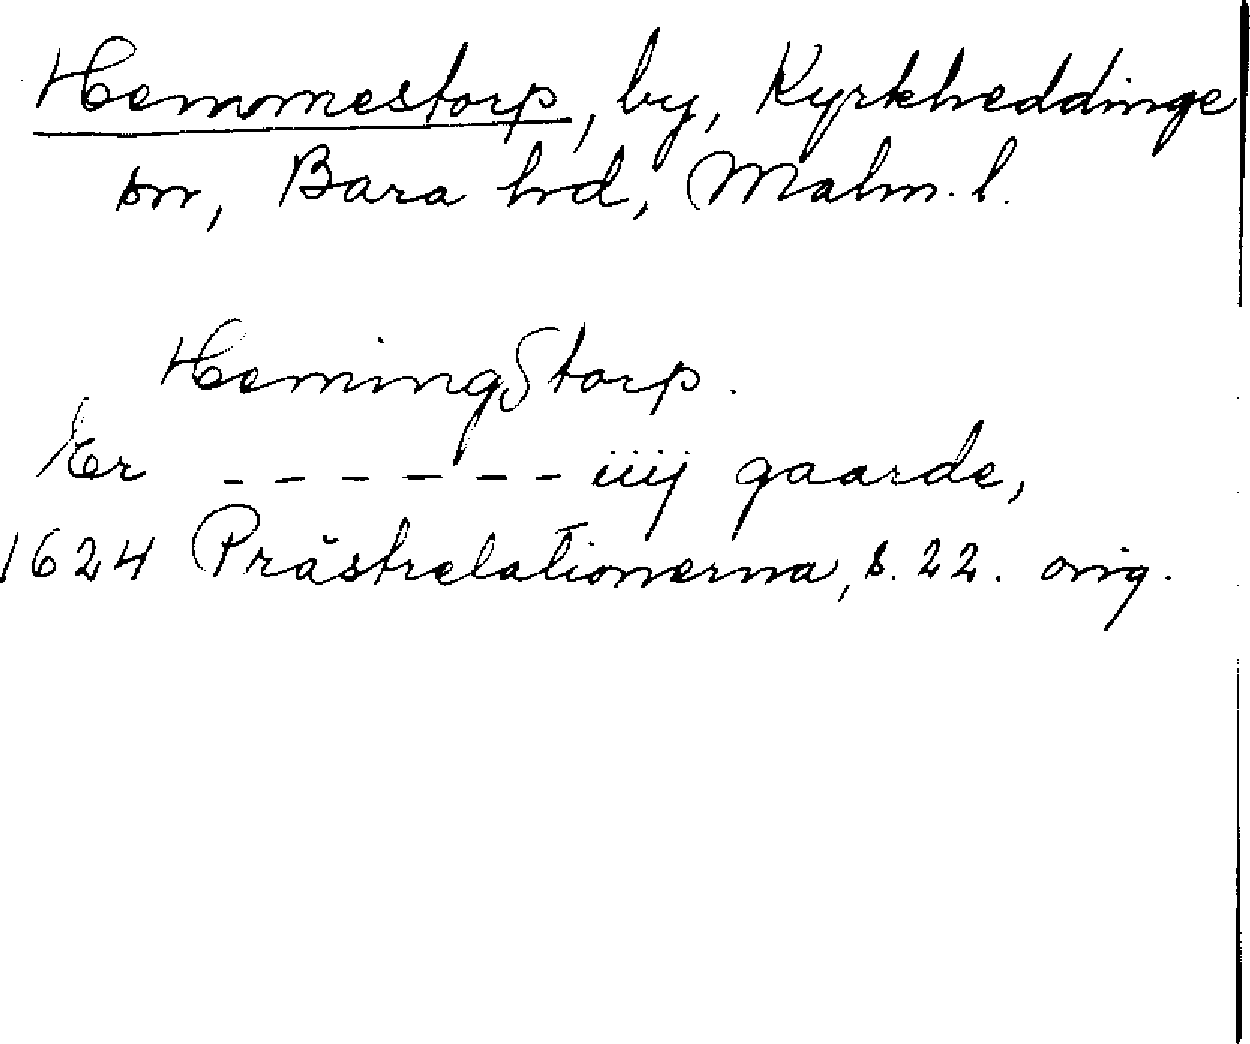 Hemmestorp, by, Kyrkheddinge
sn, Bara hd, Malm. l.
HemingStorp.
Er - - - - - - iiij gaarde,
1624 Prästrelationerna, s. 22. orig.